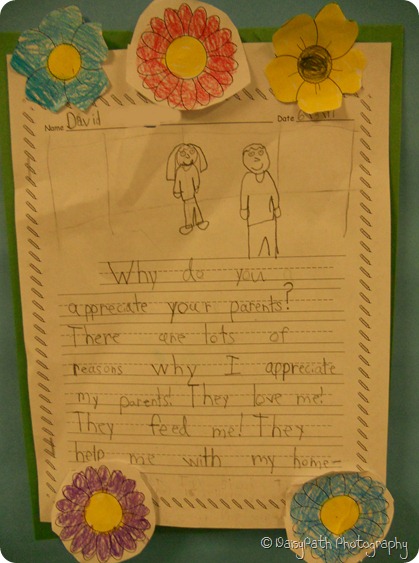 Name David Date
Why do you
apprecate your parents?
There are lots of
reasons why I appreciate
my parents! They love me!
They feed me! They
help me with my home-
© DaisyPath Photography